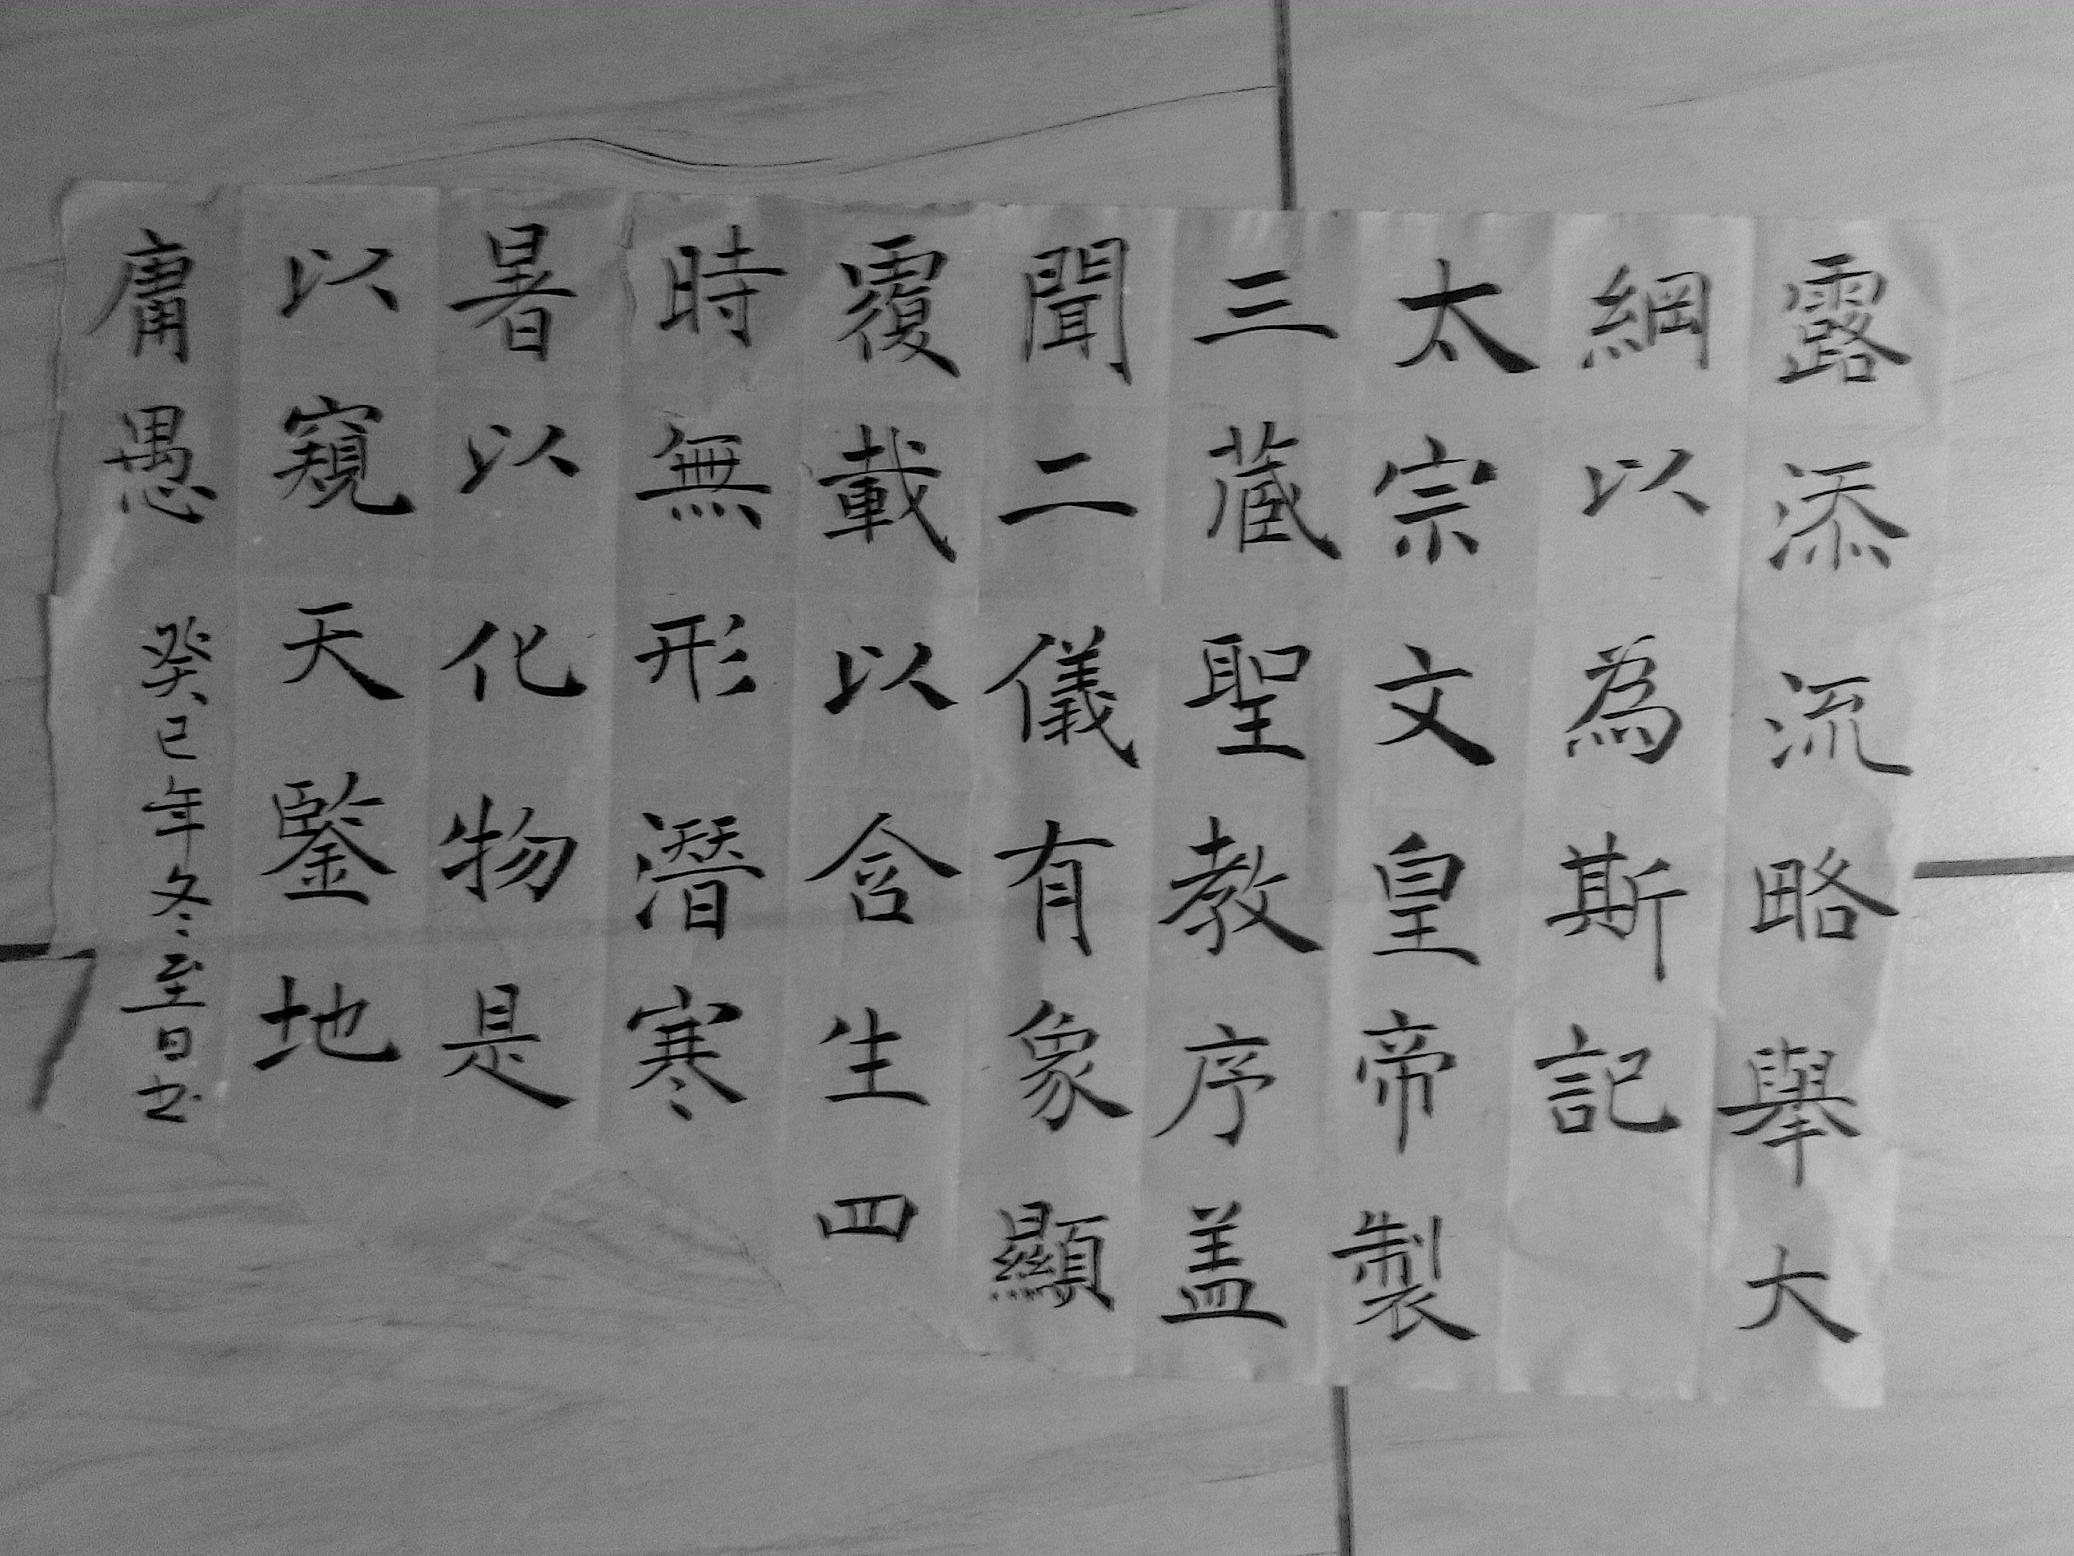 露添流略舉大
綱以為斯記
太宗文皇帝製
三藏聖教序盖
聞二儀有象顯
覆載以含生四
時無形潛寒
暑以化物是
以窺天鑒地
庸愚
癸已年冬至日书